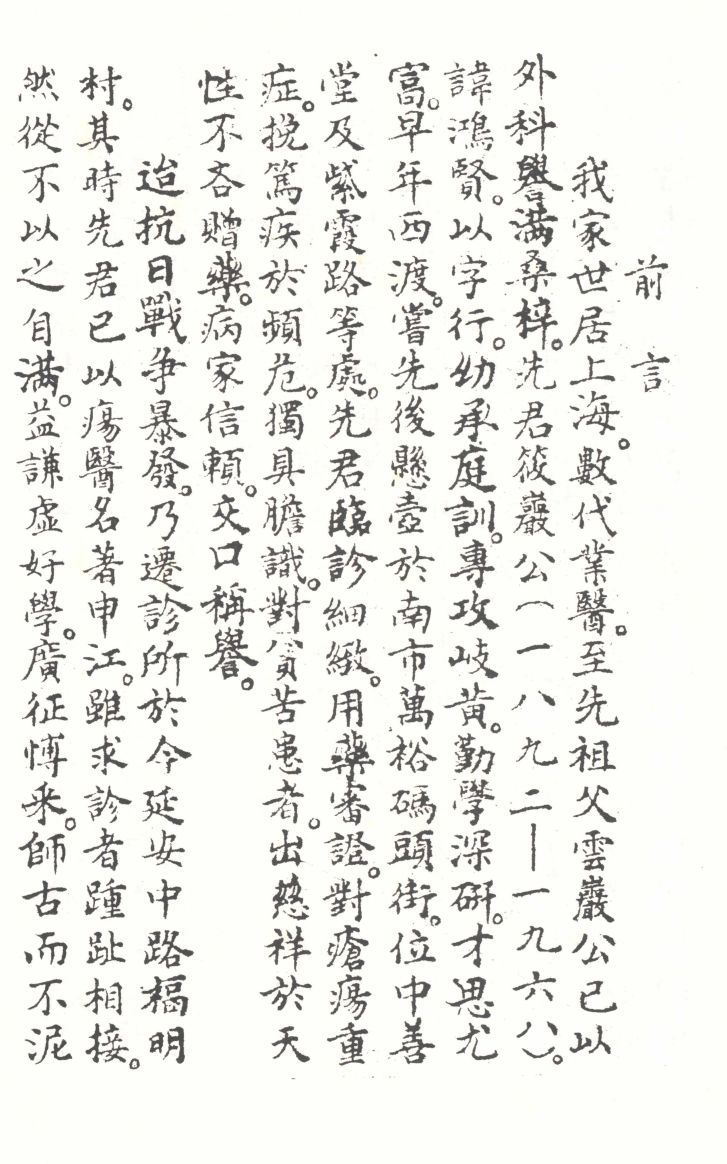 前言
我家世居上海。數代業醫。至先祖父雲巖公已以
外科譽满桑梓。先君筱巖公(一八九二—一九六八)。
諱鴻賢。以字行。幼承庭訓。專攻岐黄。勤學深研。才思尤
富。早年西渡。嘗先後懸壺於南市萬裕碼頭街。位中善
堂及紫霞路等處。先君臨診細緻。用藥審證。對瘡瘍重
症。挽篤疾於頻危。獨具膽識。對貧苦患者。出慈祥於天
性不吝贈藥。病家信賴。交口稱譽。
迨抗日戰争暴發。乃遷診所於今延安中路福明
村。其時先君已以瘍醫名著申江。雖求診者踵趾相接。
然從不以之自满。益謙虚好學。廣征博采。師古而不泥